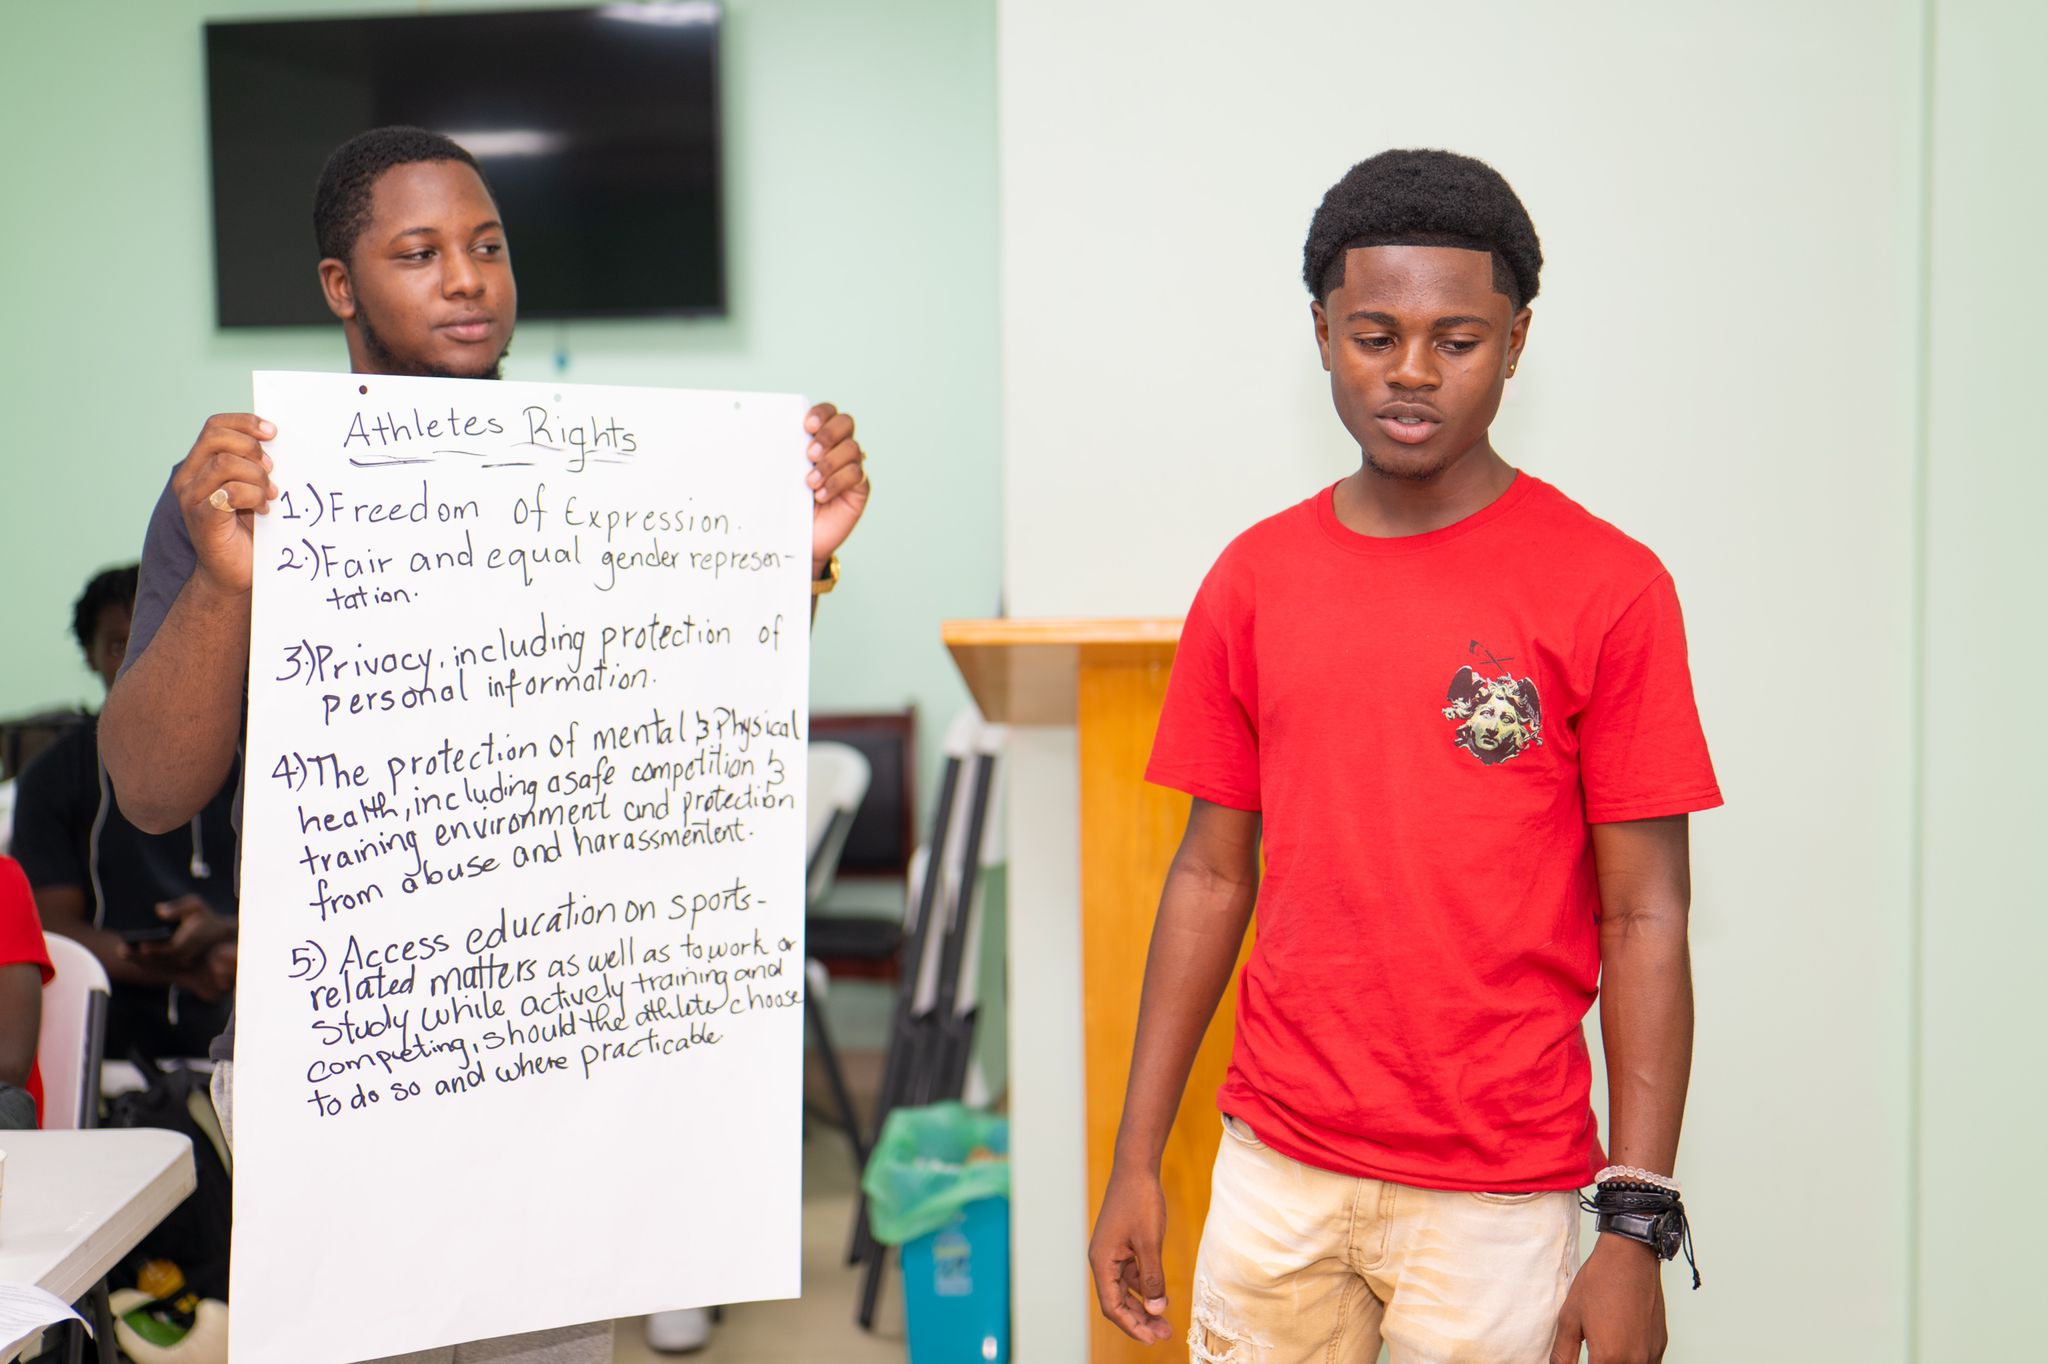 Athletes Rights
1.) Freedom of Expression.
2.) Fair and equal gender represen-
tation.
3.) Privacy, including protection of
personal information.
4.) The protection of mental & Physical
health, including a safe competition &
training environment and protection
from abuse and harassmentent.
5.) Access education on sports-
related matters as well as to work or
study while actively training and
competing, should the athlete choose
to do so and where practicable